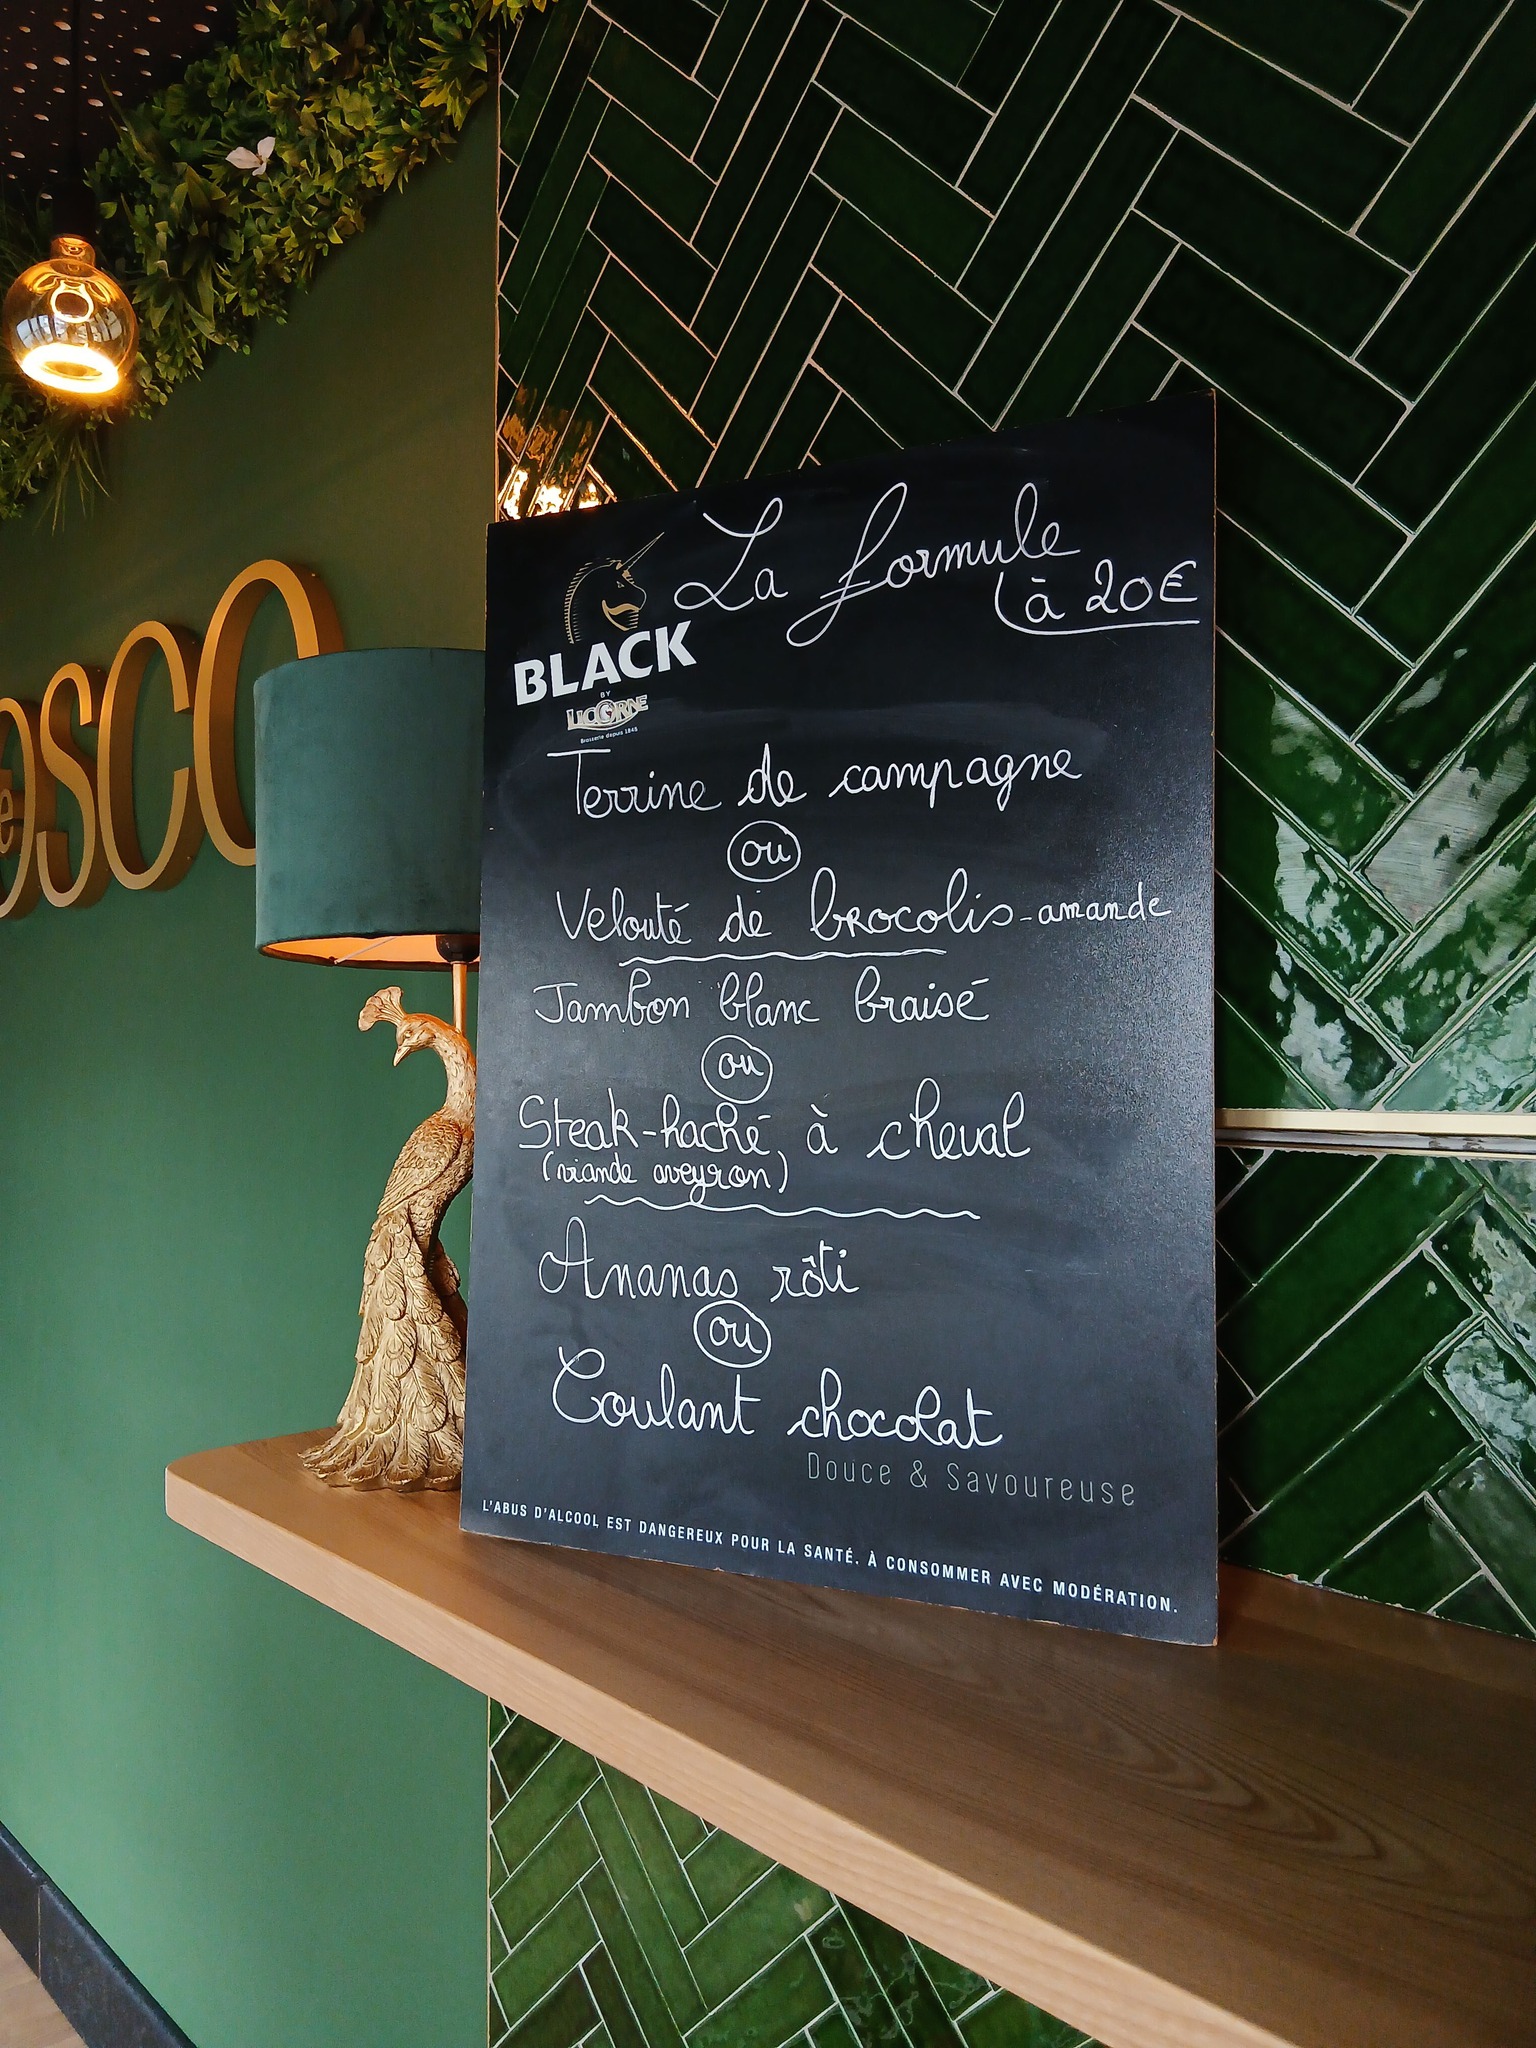 OSCO
La formule
à 20€
BLACK
BY
LICORNE
Brasserie depuis 1845
Terrine de campagne
ou
Velouté de brocolis-amande
Jambon blanc braisé
ou
Steak-haché à cheval
(viande aveyron)
Ananas rôti
ou
Coulant chocolat
Douce & Savoureuse
L'ABUS D'ALCOOL EST DANGEREUX POUR LA SANTÉ. À CONSOMMER AVEC MODÉRATION.